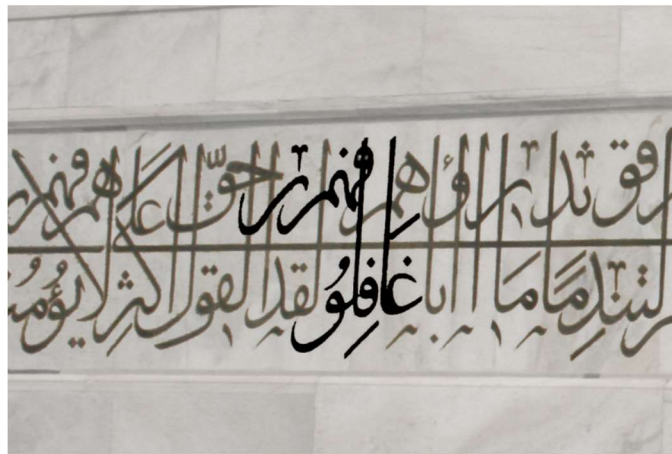 لتنذر قوما ما أنذر آباؤهم فهم غافلون لقد حق القول على أكثرهم فهم لا